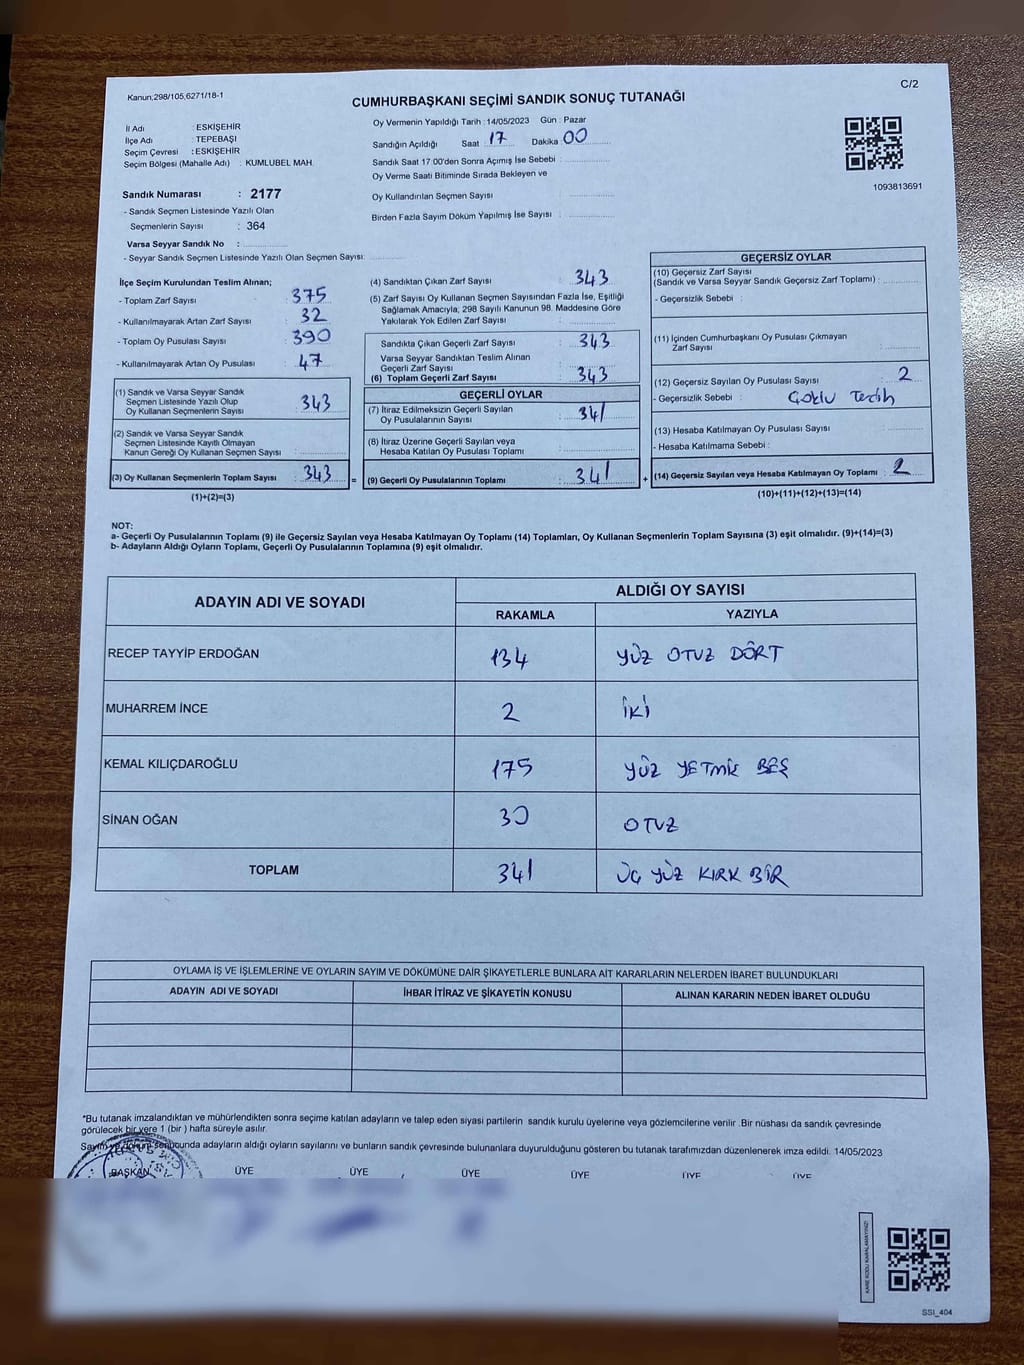 Kanun;298/105,6271/18-1
C/2
CUMHURBAŞKANI SEÇİMİ SANDIK SONUÇ TUTANAĞI
İl Adı : ESKİŞEHİR
İlçe Adı : TEPEBAŞI
Seçim Çevresi : ESKİŞEHİR
Seçim Bölgesi (Mahalle Adı) : KUMLUBEL MAH.
Sandık Numarası : 2177
- Sandık Seçmen Listesinde Yazılı Olan
Seçmenlerin Sayısı : 364
Varsa Seyyar Sandık No :
- Seyyar Sandık Seçmen Listesinde Yazılı Olan Seçmen Sayısı:
Oy Vermenin Yapıldığı Tarih : 14/05/2023 Gün : Pazar
Sandığın Açıldığı Saat 17 Dakika 00
Sandık Saat 17:00'den Sonra Açımış İse Sebebi :
Oy Verme Saati Bitiminde Sırada Bekleyen ve
Oy Kullandırılan Seçmen Sayısı
Birden Fazla Sayım Döküm Yapılmış İse Sayısı :
1093813691
İlçe Seçim Kurulundan Teslim Alınan;
- Toplam Zarf Sayısı : 375
- Kullanılmayarak Artan Zarf Sayısı : 32
- Toplam Oy Pusulası Sayısı : 390
- Kullanılmayarak Artan Oy Pusulası : 47
(1) Sandık ve Varsa Seyyar Sandık
Seçmen Listesinde Yazılı Olup
Oy Kullanan Seçmenlerin Sayısı : 343
(2) Sandık ve Varsa Seyyar Sandık
Seçmen Listesinde Kayıtlı Olmayan
Kanun Gereği Oy Kullanan Seçmen Sayısı :
(3) Oy Kullanan Seçmenlerin Toplam Sayısı : 343
(1)+(2)=(3)
=
(4) Sandıktan Çıkan Zarf Sayısı : 343
(5) Zarf Sayısı Oy Kullanan Seçmen Sayısından Fazla İse, Eşitliği
Sağlamak Amacıyla; 298 Sayılı Kanunun 98. Maddesine Göre
Yakılarak Yok Edilen Zarf Sayısı :
Sandıkta Çıkan Geçerli Zarf Sayısı : 343
Varsa Seyyar Sandıktan Teslim Alınan
Geçerli Zarf Sayısı :
(6) Toplam Geçerli Zarf Sayısı : 343
GEÇERLİ OYLAR
(7) İtiraz Edilmeksizin Geçerli Sayılan
Oy Pusulalarının Sayısı : 341
(8) İtiraz Üzerine Geçerli Sayılan veya
Hesaba Katılan Oy Pusulası Toplamı :
(9) Geçerli Oy Pusulalarının Toplamı : 341
+
GEÇERSİZ OYLAR
(10) Geçersiz Zarf Sayısı
(Sandık ve Varsa Seyyar Sandık Geçersiz Zarf Toplamı) :
- Geçersizlik Sebebi :
(11) İçinden Cumhurbaşkanı Oy Pusulası Çıkmayan
Zarf Sayısı :
(12) Geçersiz Sayılan Oy Pusulası Sayısı : 2
- Geçersizlik Sebebi : Çoklu Tercih
(13) Hesaba Katılmayan Oy Pusulası Sayısı :
- Hesaba Katılmama Sebebi :
(14) Geçersiz Sayılan veya Hesaba Katılmayan Oy Toplamı : 2
(10)+(11)+(12)+(13)=(14)
NOT:
a- Geçerli Oy Pusulalarının Toplamı (9) ile Geçersiz Sayılan veya Hesaba Katılmayan Oy Toplamı (14) Toplamları, Oy Kullanan Seçmenlerin Toplam Sayısına (3) eşit olmalıdır. (9)+(14)=(3)
b- Adayların Aldığı Oyların Toplamı, Geçerli Oy Pusulalarının Toplamına (9) eşit olmalıdır.
ADAYIN ADI VE SOYADI ALDIĞI OY SAYISI
RAKAMLA YAZIYLA
RECEP TAYYİP ERDOĞAN 134 YÜZ OTUZ DÖRT
MUHARREM İNCE 2 İKİ
KEMAL KILIÇDAROĞLU 175 YÜZ YETMİŞ BEŞ
SİNAN OĞAN 30 OTUZ
TOPLAM 341 ÜÇ YÜZ KIRK BİR
OYLAMA İŞ VE İŞLEMLERİNE VE OYLARIN SAYIM VE DÖKÜMÜNE DAİR ŞİKAYETLERLE BUNLARA AİT KARARLARIN NELERDEN İBARET BULUNDUKLARI
ADAYIN ADI VE SOYADI İHBAR İTİRAZ VE ŞİKAYETİN KONUSU ALINAN KARARIN NEDEN İBARET OLDUĞU
*Bu tutanak imzalandıktan ve mühürlendikten sonra seçime katılan adayların ve talep eden siyasi partilerin sandık kurulu üyelerine veya gözlemcilerine verilir .Bir nüshası da sandık çevresinde
görülecek bir yere 1 (bir ) hafta süreyle asılır.
Sayım ve döküm sonucunda adayların aldığı oyların sayılarını ve bunların sandık çevresinde bulunanlara duyurulduğunu gösteren bu tutanak tarafımızdan düzenlenerek imza edildi. 14/05/2023
BAŞKAN ÜYE ÜYE ÜYE ÜYE ÜYE ÜYE
KARE KODU KARALAMAYINIZ!
SSI_404